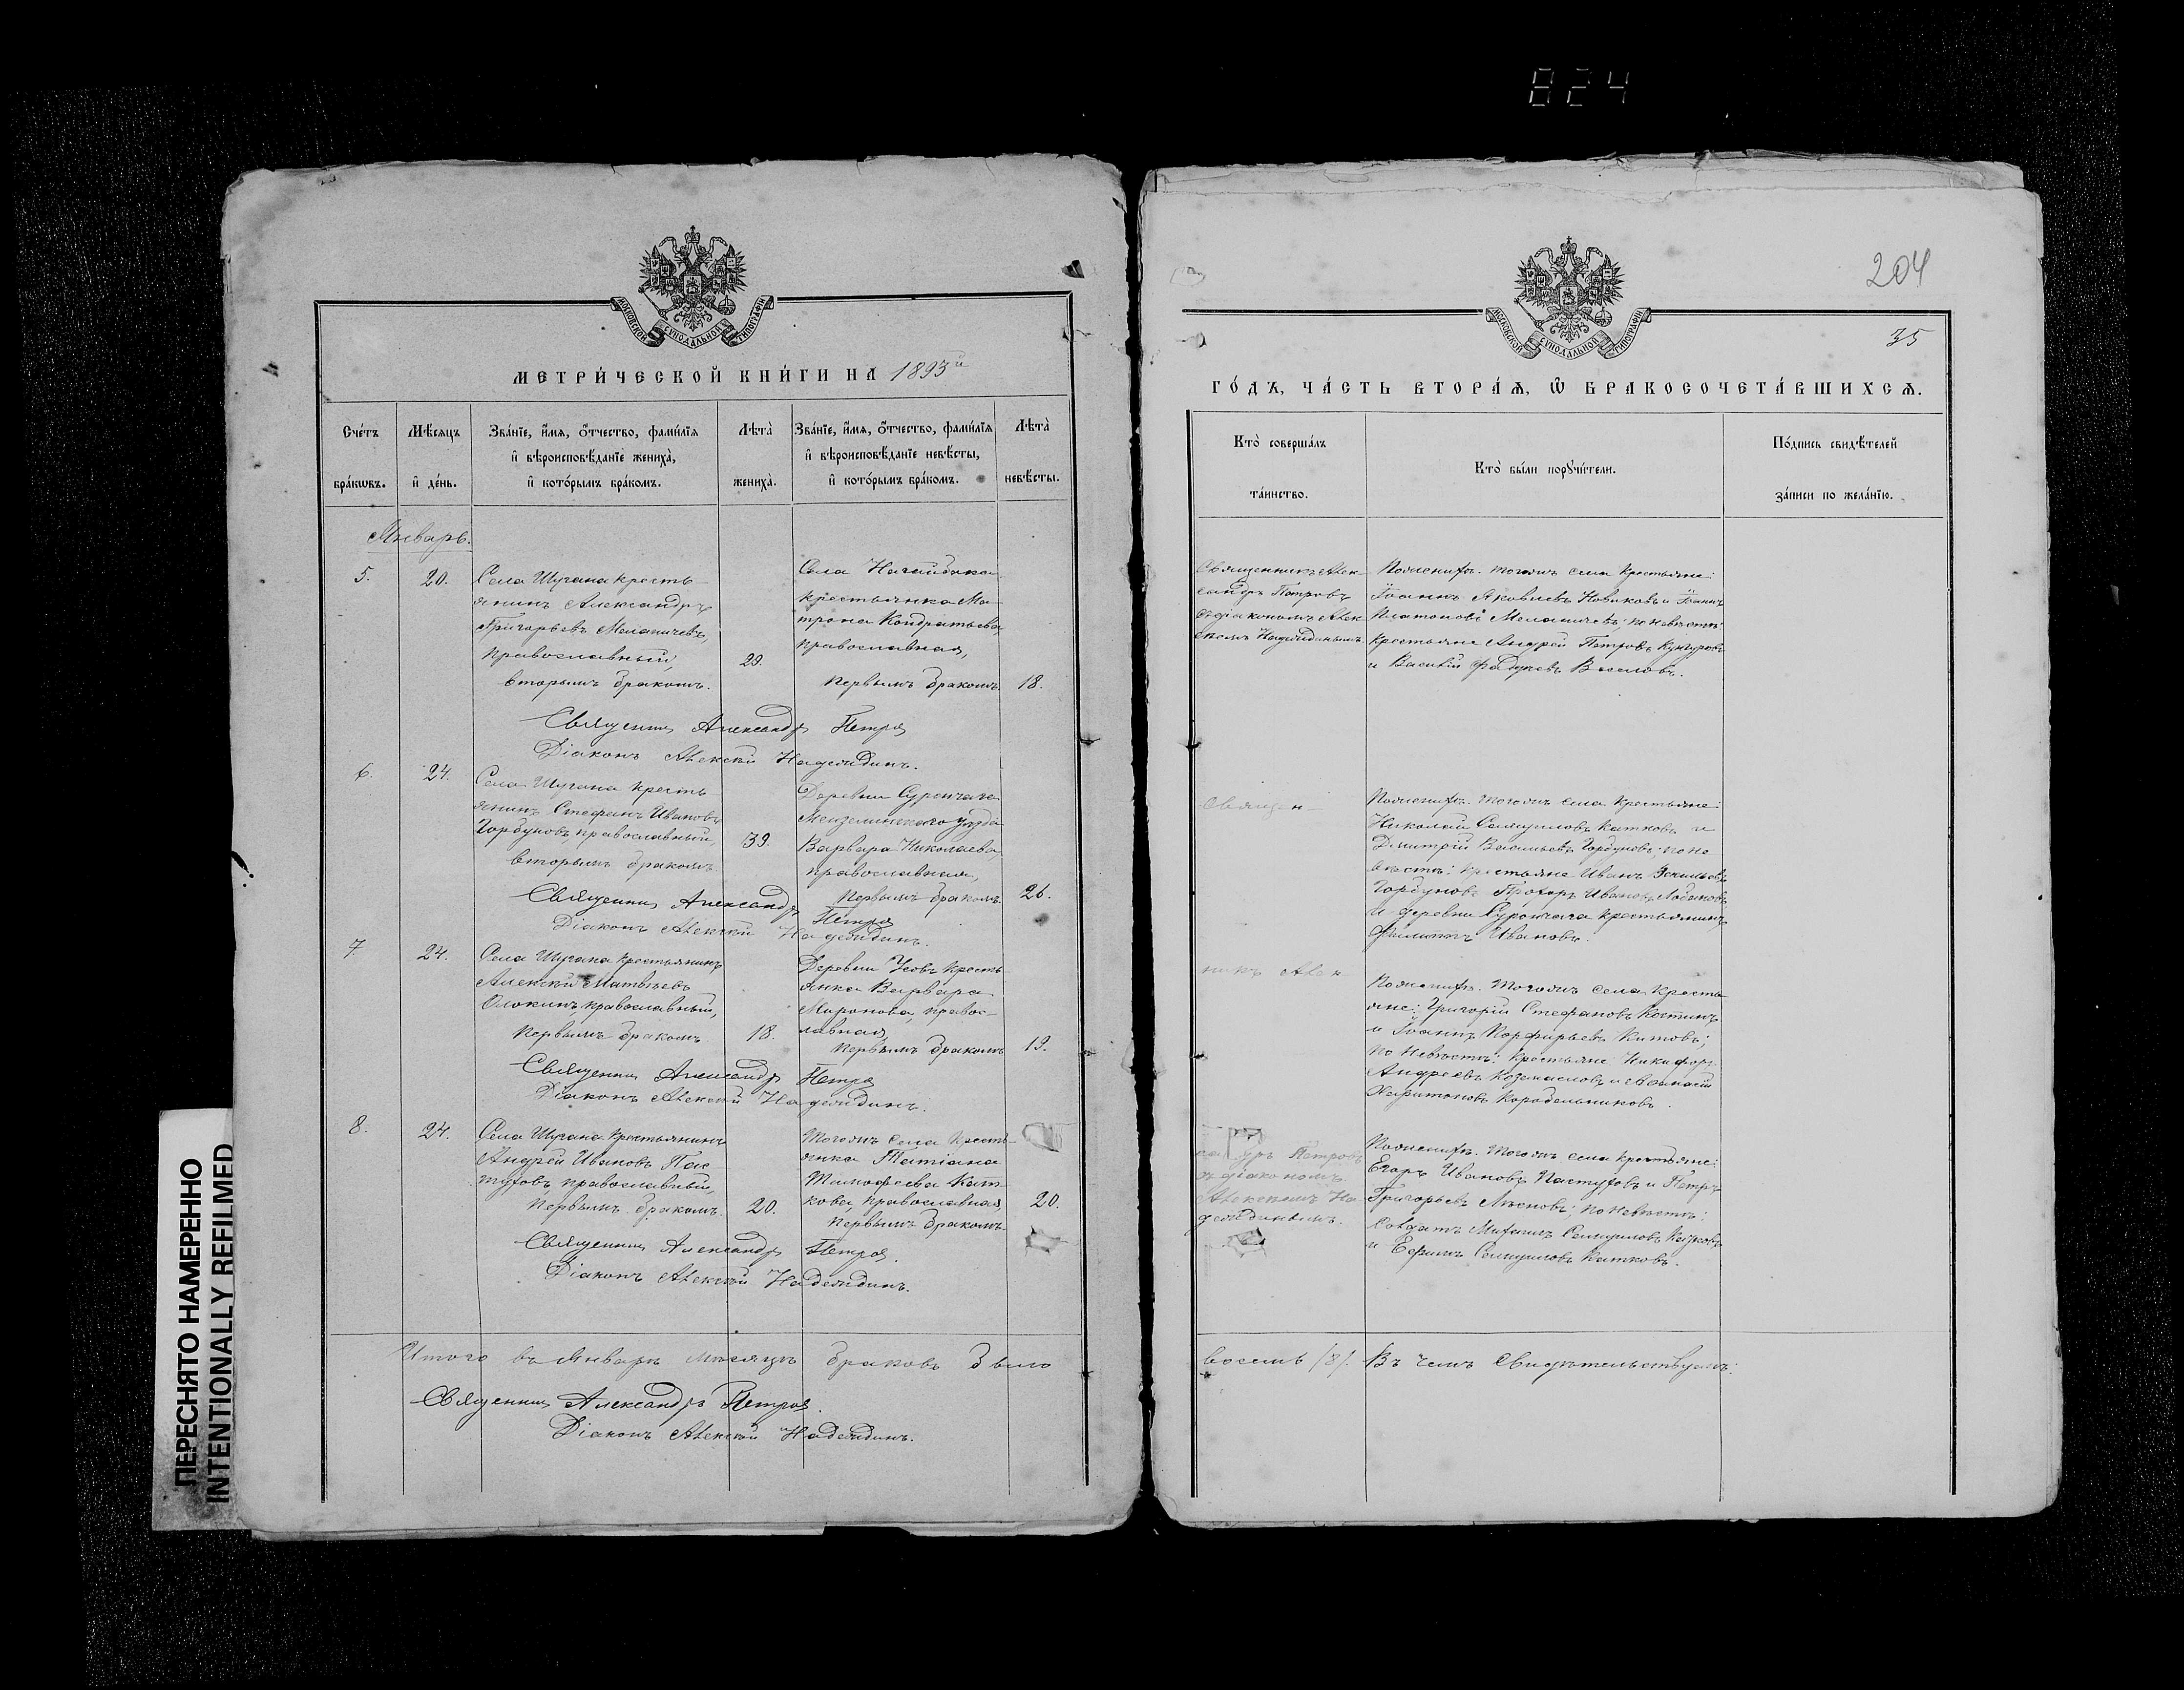 824
204
35
МОСКОВСКОЙ СѴНОДАЛЬНОЙ ТИПОГРАФІИ
МЕТРИ́ЧЕСКОЙ КНИ́ГИ НА 1893й
Сче́тъ бра́кѡвъ.
Мѣ́сяцъ и҆ де́нь.
Зва́нїе, и҆́мѧ, ѻ҆́тчество, фами́лїѧ
и҆ вѣроисповѣ́данїе жениха̀,
и҆ кото́рымъ бра́комъ.
Лѣта̀ жениха̀.
Зва́нїе, и҆́мѧ, ѻ҆́тчество, фами́лїѧ
и҆ вѣроисповѣ́данїе невѣ́сты,
и҆ кото́рымъ бра́комъ.
Лѣта̀ невѣ́сты.
Январь.
5.
20.
Села Шугана кресть
янинъ Александръ
Григорьевъ Меланичевъ,
православный,
вторымъ бракомъ.
29.
Села Нагайбака
крестьянка Ма
трона Кондратьева
православная,
первымъ бракомъ
18.
Священникъ Александръ Петровъ
Діаконъ Алексѣй Надеждинъ.
6.
24.
Села Шугана кресть
янинъ Стефанъ Ивановъ
Горбуновъ, православный,
вторымъ бракомъ
39.
Деревни Суренчага
Мензелинскаго уѣзда
Варвара Николаева,
православная,
первымъ бракомъ
26.
Священникъ Александръ Петровъ
Діаконъ Алексѣй Надеждинъ.
7.
24.
Села Шугана крестьянинъ
Алексѣй Матвѣевъ
православный,
первымъ бракомъ
18.
Деревни Усовъ кресть
янка Варвара
Миронова, правос-
лавная,
первымъ бракомъ
19.
Священникъ Александръ Петровъ
Діаконъ Алексѣй Надеждинъ.
8.
24.
Села Шугана крестьянинъ
Андрей Ивановъ Пас
туховъ, православный,
первымъ бракомъ.
20.
Тогожъ села кресть-
янка Татіана
Тимофеева Кат
кова, православная,
первымъ бракомъ.
20.
Священникъ Александръ Петровъ.
Діаконъ Алексѣй Надеждинъ.
Итого въ Январѣ мѣсяцѣ браковъ было
Священникъ Александръ Петровъ.
Діаконъ Алексѣй Надеждинъ.
МОСКОВСКОЙ СѴНОДАЛЬНОЙ ТИПОГРАФІИ
ГО́ДЪ, ЧА́СТЬ ВТОРА́Ѧ, Ѽ БРАКОСОЧЕТА́ВШИХСѦ.
Кто̀ соверша́лъ
та́инство.
Кто̀ бы́ли порꙋчи́тели.
По́дпись свидѣ́телей
за́писи по жела́нїю.
Священникъ Алек-
сандръ Петровъ
съ діакономъ Алек
сѣемъ Надеждинымъ
По женихѣ: тогожъ села крестьяне:
Іоаннъ Яковлевъ Новиковъ и Іоаннъ
Платоновъ Меланичевъ; по невѣстѣ:
крестьяне Андрей Петровъ Кунгуровъ
и Василій
Священ-
По женихѣ: тогожъ села крестьяне:
Николай Самуиловъ Катковъ и
Дмитрій Васильевъ Горбуновъ; по не
вѣстѣ: крестьяне Иванъ
Горбуновъ Прохоръ Ивановъ Лобановъ
и деревни Суренчага крестьянинъ
Филиппъ Ивановъ.
никъ Алек-
По женихѣ: тогожъ села кресть-
яне: Григорій Стефановъ Костинъ
и Іоаннъ Порфирьевъ Китовъ;
по невѣстѣ: крестьяне Никифоръ
Андреевъ и Аѳанасій
Харитоновъ Коробельниковъ.
Петровъ
съ діакономъ
Алексѣемъ На-
деждинымъ.
По женихѣ: тогожъ села крестьяне:
Егоръ Ивановъ Пастуховъ и Петръ
Григорьевъ по невѣстѣ:
Солдатъ Самуиловъ
и Ефимъ Самуиловъ Катковъ.
восемь (8). Въ чемъ свидѣтельствуемъ:
ПЕРЕСНЯТО НАМЕРЕННО
INTENTIONALLY REFILMED